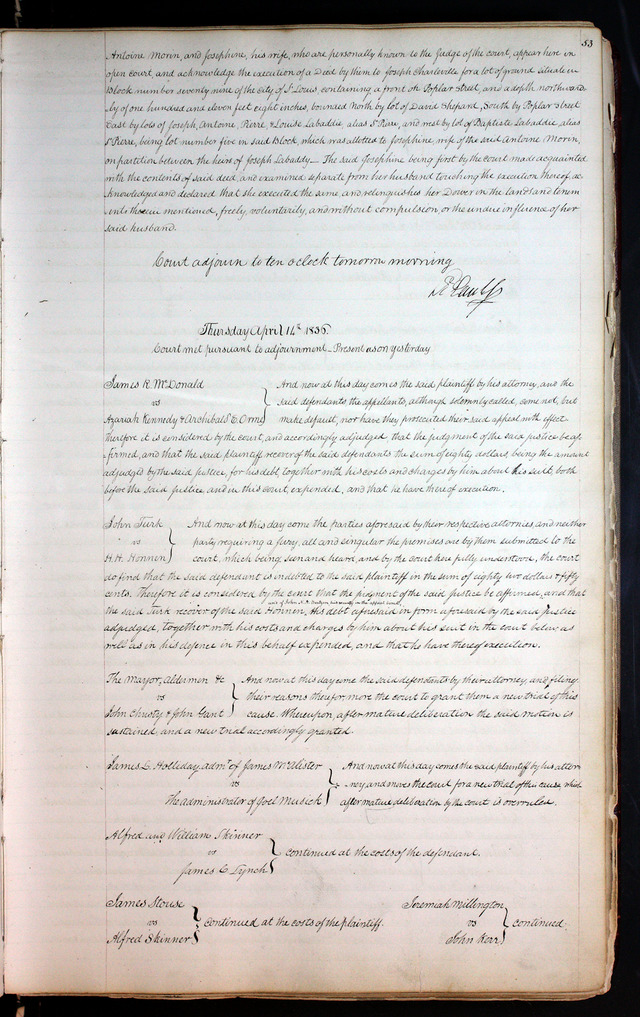 53
Antoine Morin, and Josephine, his wife, who are personally known to the Judge of the court, appear here in
open court, and acknowledge the execution of a Deed by them to Joseph Charleville for a lot of ground situate in
Block number seventy nine of the city of St Louis, containing a front on Poplar Street, and a depth northward
ly of one hundred and eleven feet eight inches, bounded North by lot of David Shepard, South by Poplar Street
East by lots of Joseph, Antoine, Pierre, & Louise Labaddie, alias St Pierre, and west by lot of Baptiste Labaddie, alias
St Pierre, being lot number five in said Block, which was allotted to Josephine, wife of the said Antoine Morin,
on partition between the heirs of Joseph Labaddy_ The said Josephine being first by the court made acquainted
with the contents of said deed, and examined separate from her husband touching the execution thereof, ac
knowledged and declared that she executed the same, and relinquishes her Dower in the land and tenem
ents therein mentioned, freely, voluntarily, and without compulsion, or the undue influence of her
said husband.
Court adjourn to ten o'clock tomorrow morning
Thursday April 14th 1836.
Court met pursuant to adjournment_ Present as on yesterday
James R. McDonald
vs
Azariah Kennedy & Archibald E. Orme
And now at this day comes the said plaintiff by his attorney, and the
said defendants the appellants, although solemnly called, come not, but
make default, nor have they prosecuted their said appeal with effect
therefore it is considered by the court, and accordingly adjudged, that the judgment of the said justice be af
firmed, and that the said plaintiff recover of the said defendants the sum of eighty dollars, being the amount
adjudged by the said justice, for his debt, together with his costs and charges by him about his suit, both
before the said Justice, and in this court, expended, and that he have thereof execution.
John Turk
vs
H. H. Honnen
And now at this day come the parties aforesaid by their respective attornies, and neither
party requiring a Jury, all and singular the premises are by them submitted to the
court, which being seen and heard, and by the court here fully understood, the court
do find that the said defendant is indebted to the said plaintiff in the sum of eighty two dollars & fifty
cents. Therefore it is considered by the court that the judgment of the said justice be affirmed, and that
the said Turk recover of the said Honnen, his security in the appeal bond, His debt aforesaid in form aforesaid by the said Justice
adjudged, together with his costs and charges by him about his suit in the court below, as
well as in his defence in this behalf expended, and that he have thereof execution.
The Mayor, Aldermen &c
vs
John Christy & John Grant
And now at this day come the said defendants by their attorney, and filing
their reasons therefor, move the court to grant them a new trial of this
cause. Whereupon, after mature deliberation the said motion is
sustained, and a new trial accordingly granted.
James L. Holliday, admr of James McAlister
vs
The administrator of Joel Musick
And now at this day comes the said plaintiff by his attor-
ney, and moves the court for a new trial of the cause, which
after mature deliberation by the court is overruled.
Alfred and William Skinner
vs
James C. Lynch
continued at the costs of the defendant.
James Stouse
vs
Alfred Skinner
continued at the costs of the plaintiff.
Jeremiah Millington
vs
John Kerr
continued.